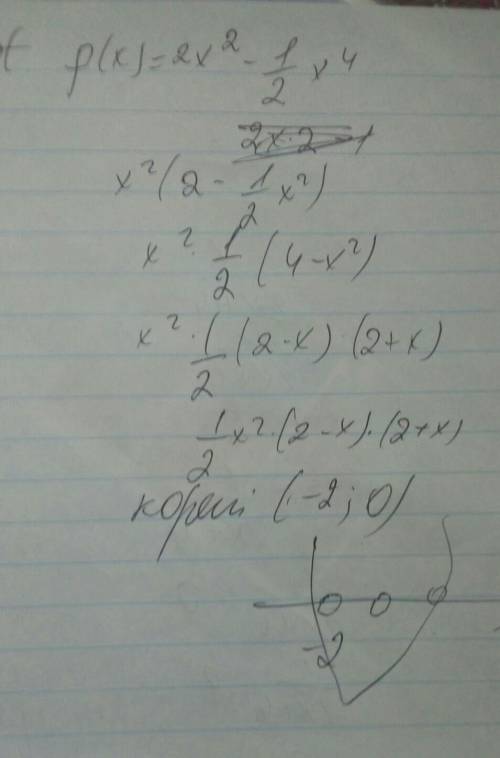 f(x)=2x² - 1/2 x⁴
x²(2 - 1/2 x²)
x² · 1/2 (4-x²)
x² · 1/2 (2-x) · (2+x)
1/2 x² · (2-x) · (2+x)
корені (-2; 0)
-2